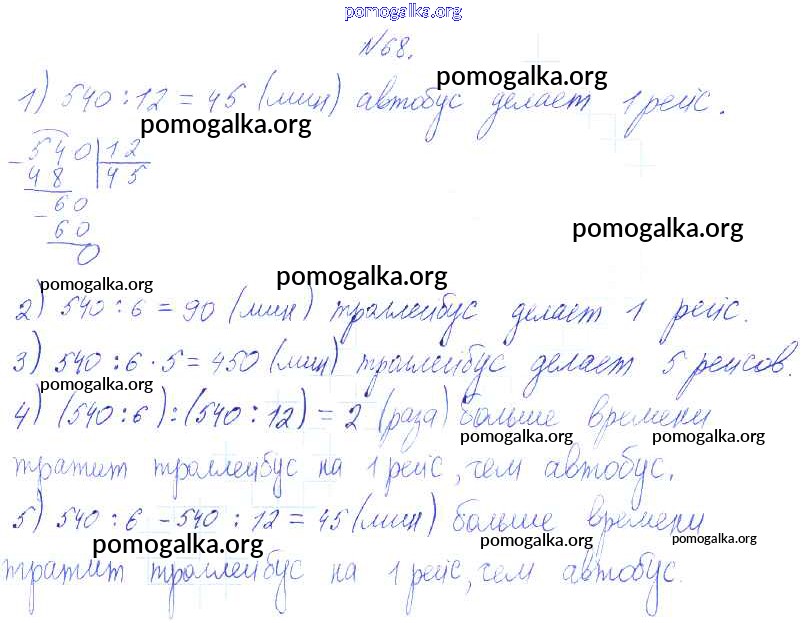 pomogalka.org
№68.
pomogalka.org
1) 540 : 12 = 45 (мин) автобус делает 1 рейс.
pomogalka.org
- 540 | 12
48 | 45
- 60
60
0
pomogalka.org
pomogalka.org
pomogalka.org
2) 540 : 6 = 90 (мин) троллейбус делает 1 рейс.
3) 540 : 6 · 5 = 450 (мин) троллейбус делает 5 рейсов.
pomogalka.org
4) (540 : 6) : (540 : 12) = 2 (раза) больше времени
pomogalka.org pomogalka.org
тратит троллейбус на 1 рейс, чем автобус.
5) 540 : 6 - 540 : 12 = 45 (мин) больше времени
pomogalka.org pomogalka.org pomogalka.org
тратит троллейбус на 1 рейс, чем автобус.